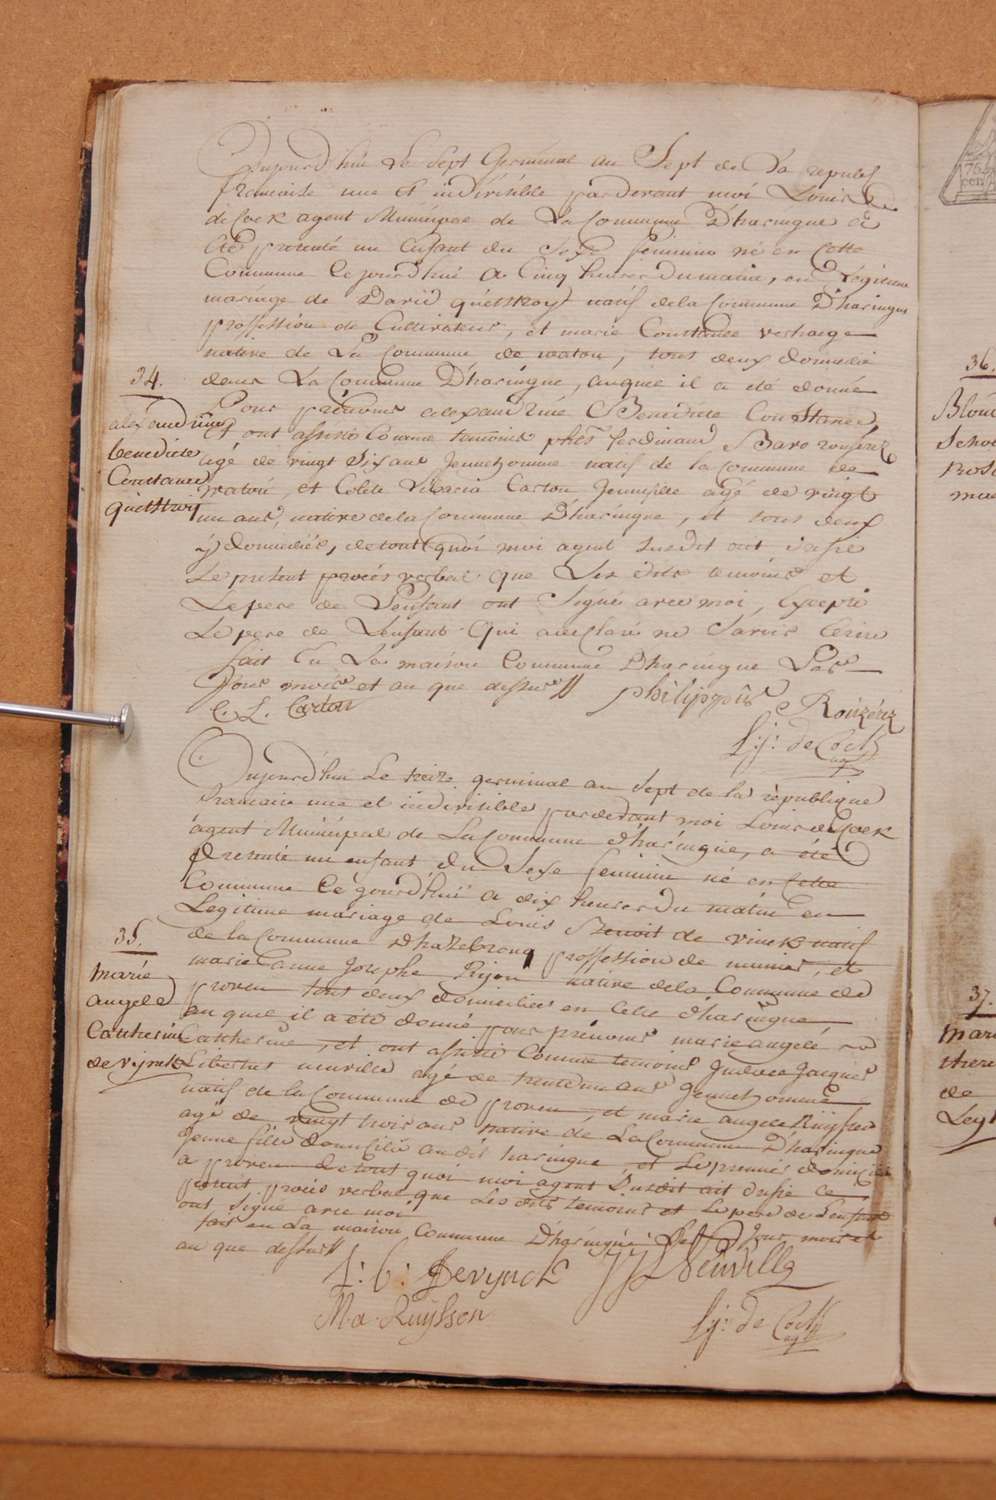 Aujourd'hui Le Sept Germinal an Sept de La republ
francaise une et indivisible pardevant moi Louis
de Cock agent Municipae de La Commune D'haringue a
été presenté un Enfant du Sexe feminin né en Cette
Commune Cejourdhui a Cinq heures du matin, en Legitime
mariage de David quettstroy natif dela Commune D'haringue
proffession de Cultivateur, et marie Constance verhaege
native de La Commune de watou, tous deux domicilié
dans La Commune D'haringue, auquel il a été donné
34.
alexandrine
benedicte
Constance
quettstroy
Pour prenoms alexandrine Benedicte Constance,
et ont assisté Comme temoins phes ferdinand Baro rouzeré
agé de vingt Six ans Jennehomme natif de la Commune de
watou, et Colete Liberia Carton Jennefille agé de vingt
un ans, native dela Commune D'haringue, et tous deux
y domiciliés, detout quoi moi agent Susdit ont dressé
Le present procés verbal que Les dits temoins et
Lepere de L'enfant ont Signé avec moi, Excepté
Le pere de L'enfant Qui a declaré ne Savoir Ecrire
fait En La maison Commune D'haringue Les
Jour mois et an que dessus //
philippus Rouzéré
C. L. Carton
L: j: de Cock
agt
Aujourd'hui Le treize germinal an Sept de la république
francaise une et indivisible pardevant moi Louis de Cock
agent Municipal de La Commune d'haringue, a été
presenté un enfant du Sexe feminin né en Cette
Commune Cejourd'hui a dix heures du matin en
Legitime mariage de Louis Benoit de vinck natif
35.
marie
angele
Catherine
de vynck
de la Commune d'hazebrouq proffession de munier, et
marie anne Josephe Rijon native dela Commune de
proven tous deux domiciliés en Cette d'haringue
au quel il a été donné pour prénoms marie angele
Catherine, et ont assisté Comme temoins Judoce Jacques
Libertus neuville agé de trente un ans Jennehomme
natif de la Commune de proven, et marie angele Ruijssen
agé de vingt trois ans native de La Commune D'haringue
Jenne fille domicilié audit haringue, et Le premié domicilié
a proven detout quoi moi agent Susdit ait dressé ce
present procés verbal que Les dits temoins et Le pere de L'enfant
ont Signé avec moi
fait en La maison Commune D'haringue Les Jour, mois et
an que dessus //
L: b: Devynck
JJL Neuville
M. a. Ruijssen
L: j: de Cock
agt
36.
Blon
37.
mar
de